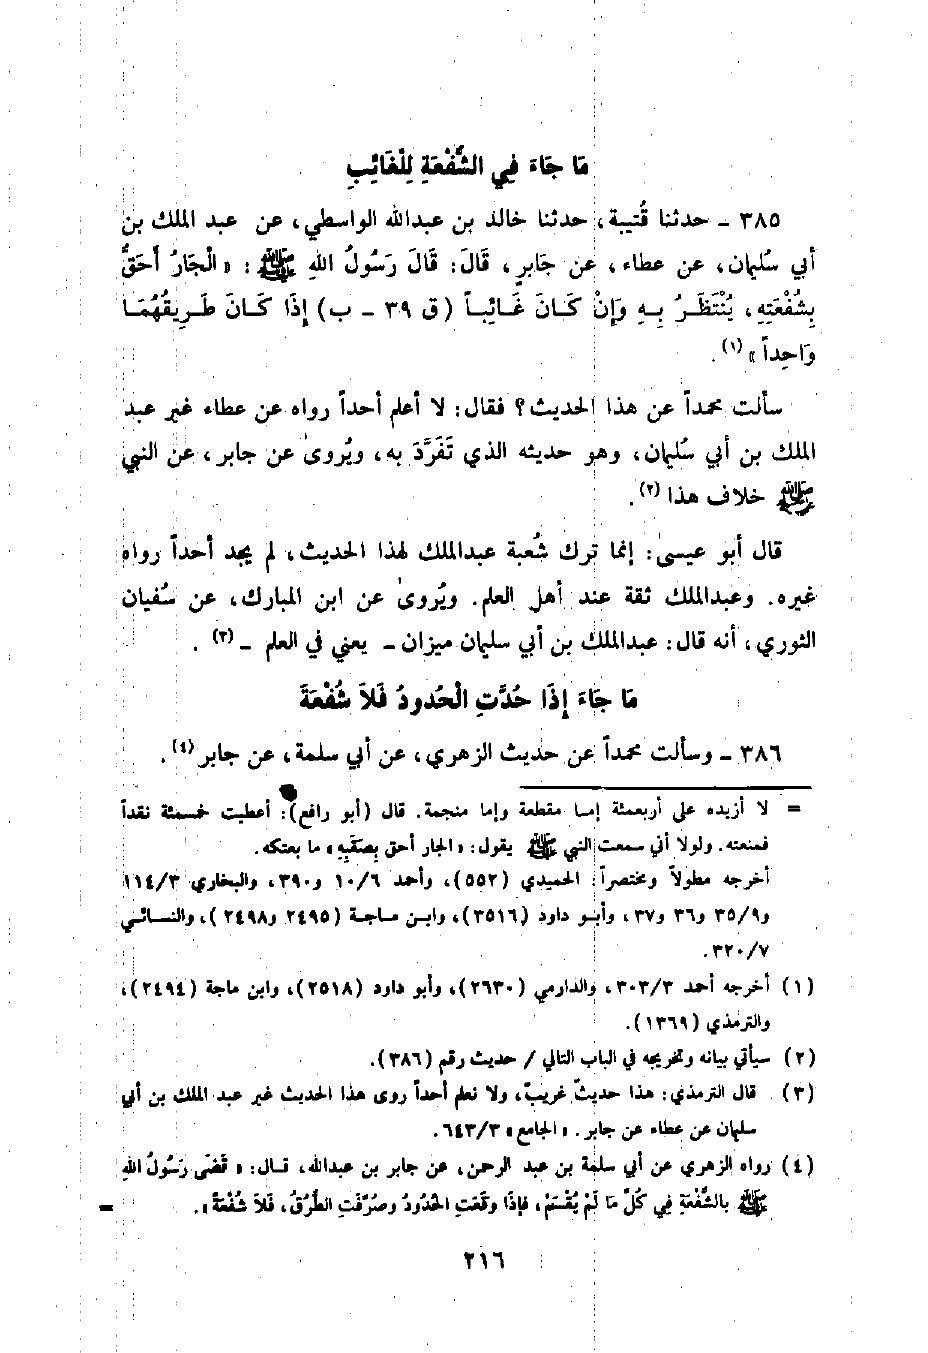 مَا جَاءَ فِي الشُّفْعَةِ لِلْغَائِبِ
٣٨٥ ـ حدثنا قُتيبة، حدثنا خالد بن عبدالله الواسطي، عن عبد الملك بن
أبي سُليمان، عن عطاء، عن جَابرٍ، قَالَ: قَالَ رَسُولُ اللهِ ﷺ: «الْجَارُ أَحَقُّ
بِشُفْعَتِهِ، يُنْتَظَرُ بِهِ وَإِنْ كَانَ غَائِباً (ق ٣٩ ـ ب) إِذَا كَانَ طَرِيقُهُمَا
وَاحِداً»(١).
سألت محمداً عن هذا الحديث؟ فقال: لا أعلم أحداً رواه عن عطاء غير عبد
الملك بن أبي سُليمان، وهو حديثه الذي تَفَرَّدَ به، ويُروىٰ عن جابر، عن النبي
ﷺ خلاف هذا(٢).
قال أبو عيسىٰ: إنما ترك شُعبة عبدالملك لهذا الحديث، لم يجد أحداً رواه
غيره. وعبدالملك ثقة عند أهل العلم. ويُروىٰ عن ابن المبارك، عن سُفيان
الثوري، أنه قال: عبدالملك بن أبي سليمان ميزان ـ يعني في العلم ـ(٣).
مَا جَاءَ إِذَا حُدَّتِ الْحُدودُ فَلاَ شُفْعَةَ
٣٨٦ ـ وسألت محمداً عن حديث الزهري، عن أبي سلمة، عن جابر(٤).
= لا أزيده على أربعمئة إما مقطعة وإما منجمة. قال (أبو رافع): أعطيت خمسمئة نقداً
فمنعته. ولولا أني سمعت النبي ﷺ يقول: «الجار أحق بِصَقَبِهِ» ما بعتكه.
أخرجه مطولاً ومختصراً: الحميدي (٥٥٢)، وأحمد ١٠/٦ و٣٩٠، والبخاري ١١٤/٣
و٣٥/٩ و٣٦ و٣٧، وأبو داود (٣٥١٦)، وابن ماجة (٢٤٩٥ و٢٤٩٨)، والنسائي
٣٢٠/٧.
(١) أخرجه أحمد ٣٠٣/٣، والدارمي (٢٦٣٠)، وأبو داود (٢٥١٨)، وابن ماجة (٢٤٩٤)،
والترمذي (١٣٦٩).
(٢) سيأتي بيانه وتخريجه في الباب التالي / حديث رقم (٣٨٦).
(٣) قال الترمذي: هذا حديثٌ غريبٌ، ولا نعلم أحداً روى هذا الحديث غير عبد الملك بن أبي
سليمان عن عطاء عن جابر. «الجامع» ٦٤٣/٣.
(٤) رواه الزهري عن أبي سلمة بن عبد الرحمن، عن جابر بن عبدالله، قال: «قَضَى رَسُولُ اللهِ
ﷺ بالشُّفْعَةِ فِي كُلِّ مَا لَمْ يُقْسَمْ، فإِذَا وقَعَتِ الحُدُودُ وصُرِّفَتِ الطُّرُقُ، فَلاَ شُفْعَةَ». =
٢١٦